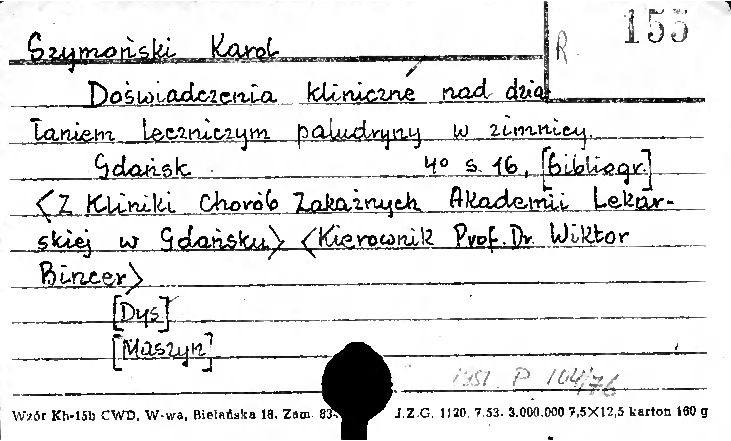 155
R.
Szymoński Karol
Doświadczenia kliniczne nad dzia
łaniem leczniczym paludryny w zimnicy.
Gdańsk 4° s. 16, [Bibliogr.]
<Z Kliniki Chorób Zakaźnych Akademii Lekar-
skiej w Gdańsku> <Kierownik Prof. Dr. Wiktor
Bincer>
[Dys]
[Maszyn]
1981 P 104/76
Wzór Kb-15b CWD, W-wa, Bielańska 18. Zam. 83 J.Z.G. 1120. 7.53. 3.000.000 7,5×12,5 karton 160 g